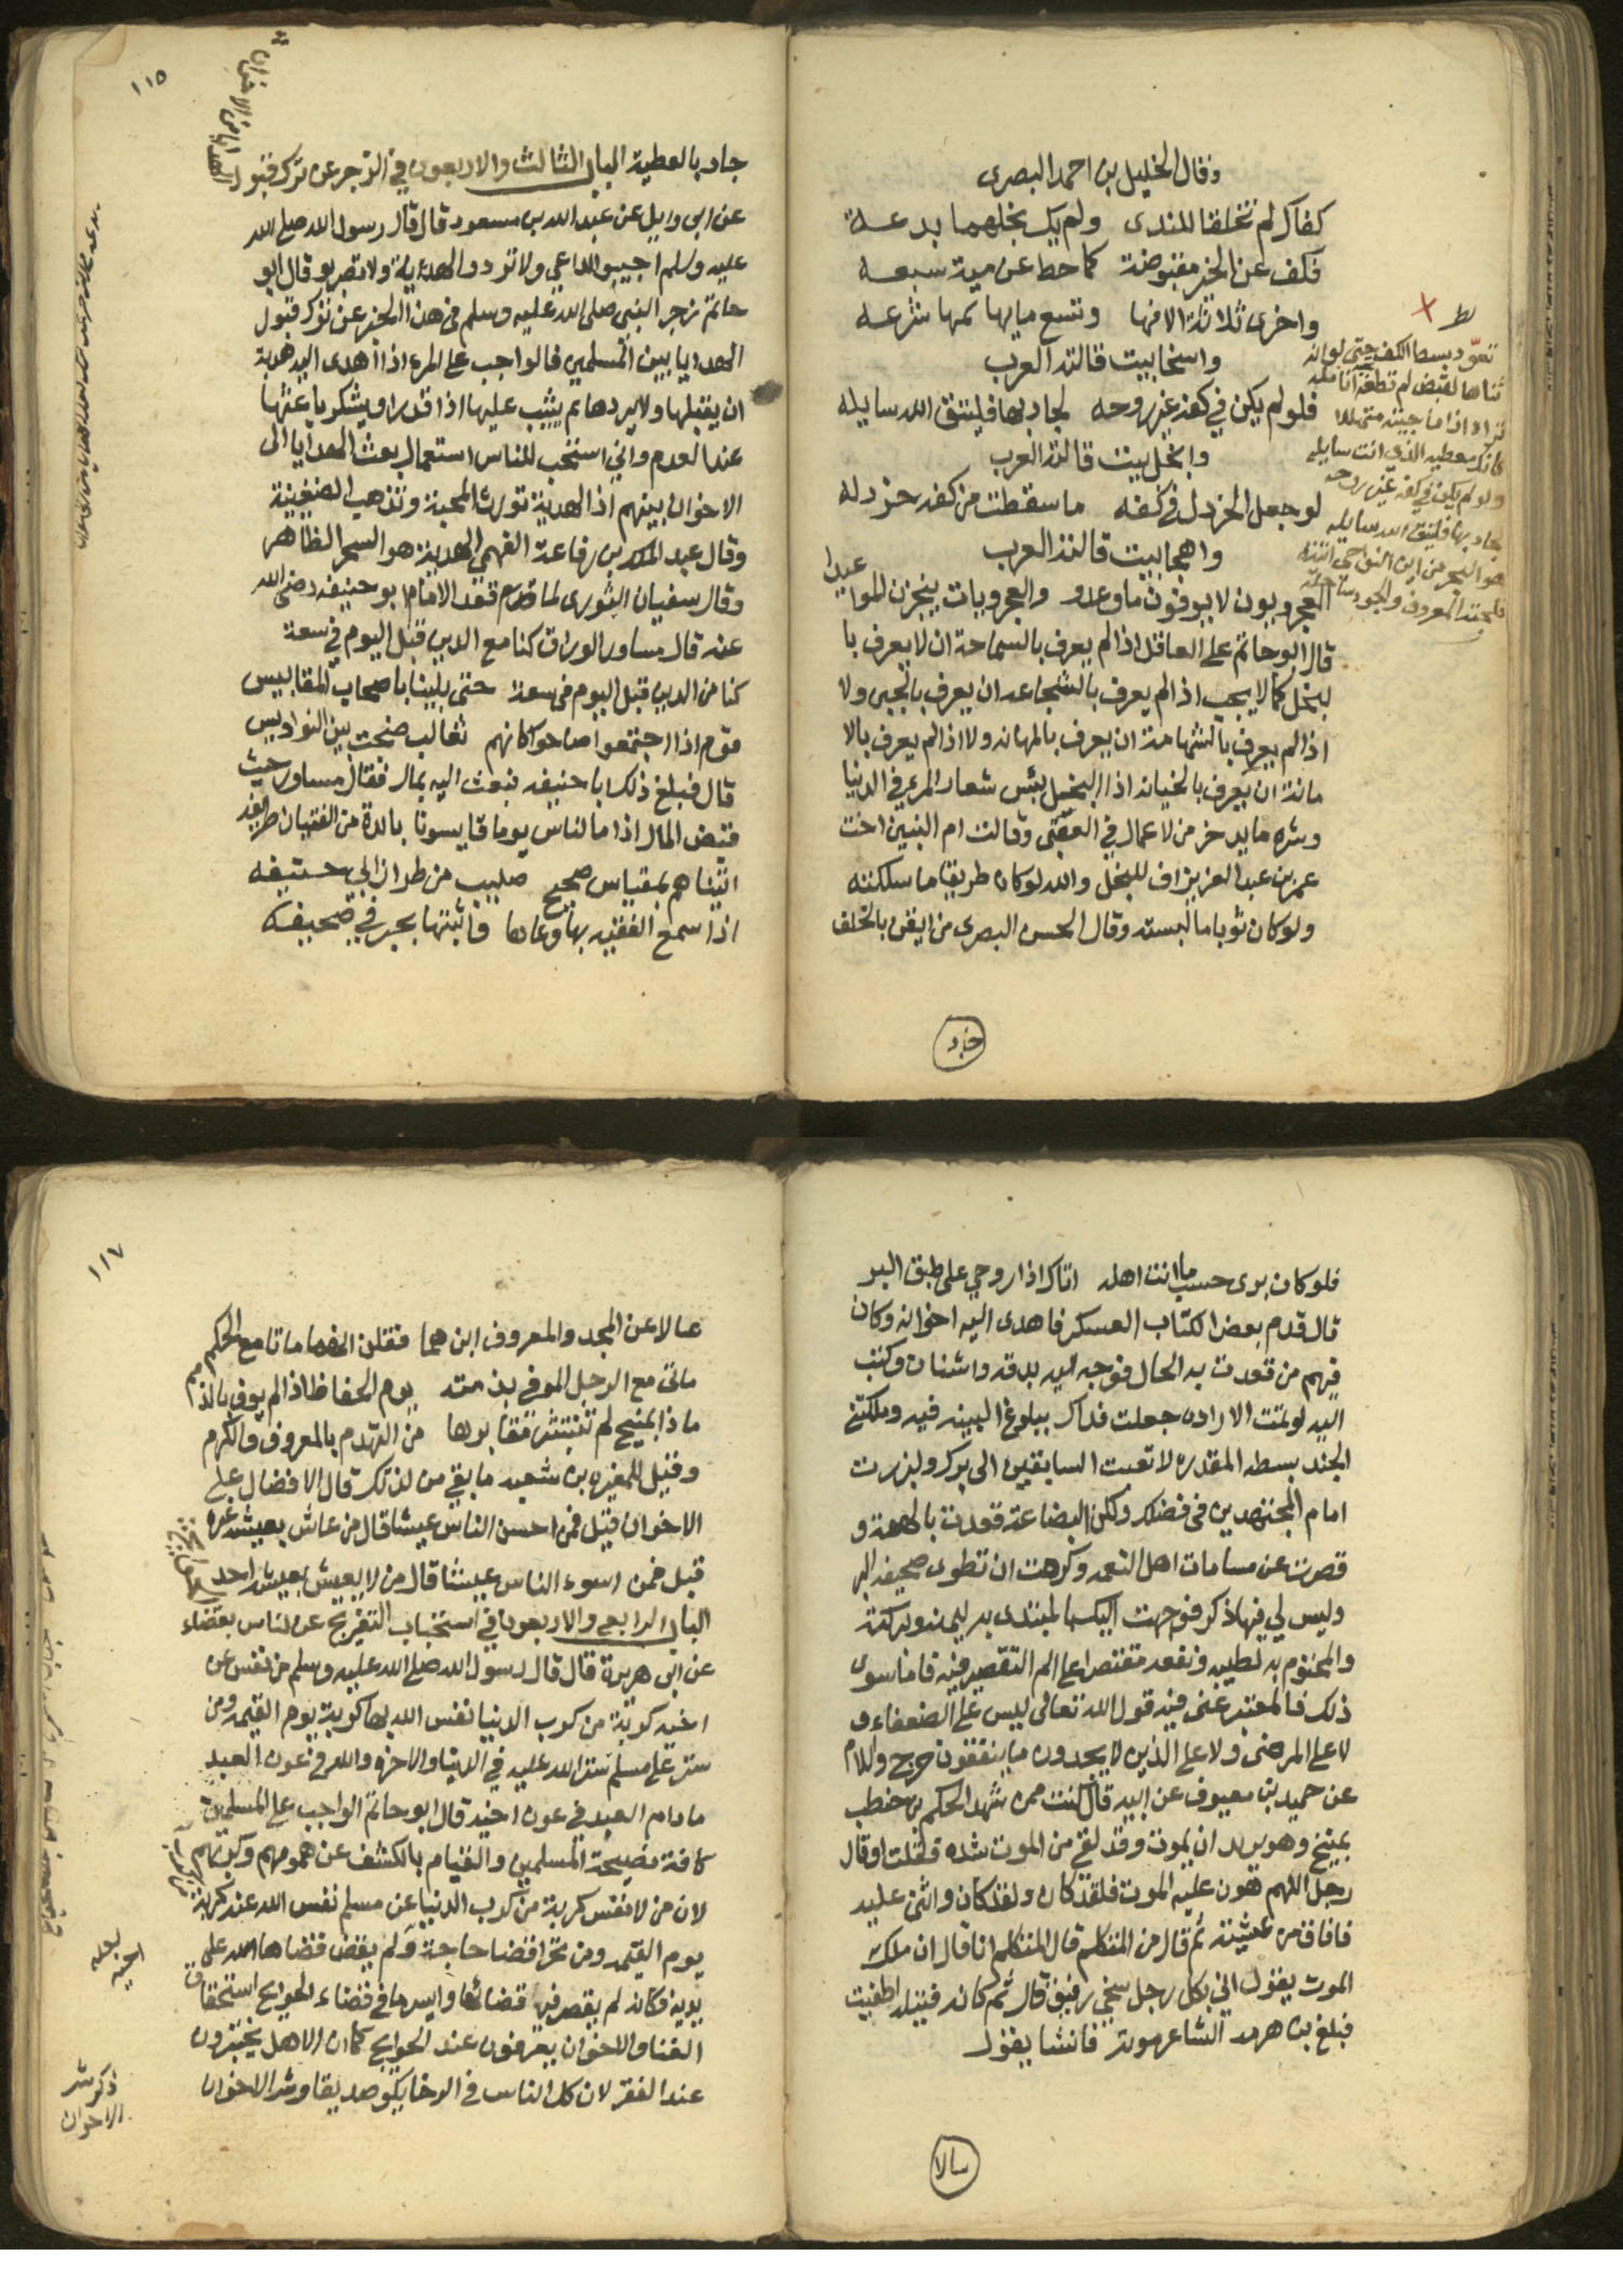 وقال الخليل بن احمد البصرى
كفاك لم تخلقا للندى ولم يك بخلهما بدعة
فكف عن الخير مقبوضة كما حط عن مية سبعه
واخرى ثلاثة الافها وتسع مايها لمها شرعه
واسخا بيت قالته العرب
فلو لم يكن في كفه غير روحه لجاد بها فليتق الله سايله
وابخل بيت قالته العرب
لو جعل الخردل في كفه ما سقطت من كفه خردله
واهجا بيت قالته العرب
العجرويون لا يوفون ما وعدو والعجرويات ينجزن المواعيدا
قال ابو حاتم على العاقل اذا لم يعرف بالسماحة ان لا يعرف با
لبخل كما لا يجب اذا لم يعرف بالشجاعه ان يعرف بالجبن ولا
اذا لم يعرف بالشهامة ان يعرف بالمهانه ولا اذا لم يعرف بالا
مانة ان يعرف بالخيانه اذا البخل بئس شعار المرء في الدنيا
وشره ما يدخر من لاعمال في العقبى وقالت ام البنين اخت
عمر بن عبد العزيز اف للبخل والله لو كان طريقا ما سلكته
ولو كان ثوبا ما لبسته وقال الحسن البصرى من ايقن بالخلف
جاد
تعود بسط الكف حتى لو انه
ثناها لقبض لم تطعه انامله
تراه اذا ما جيته متهللا
كانك معطيه الذي انت سايله
ولو لم يكن في كفه غير روحه
لجاد بها فليتق الله سايله
هو البحر من اين النواحي اتيته
فلجته المعروف والجود ساحله
١١٥
جاد بالعطية الباب الثالث والاربعون في الزجر عن ترك قبول الهدايا من الاخوان
عن ابى وايل عن عبد الله بن مسعود قال قال رسول الله صلى الله
عليه وسلم اجيبو الداعي ولا تردو الهدية ولا تضربو قال ابو
حاتم زجر النبي صلى الله عليه وسلم في هذا الخبر عن ترك قبول
الهدايا بين المسلمين فالواجب على المرء اذا اهدى اليه هدية
ان يقبلها ولا يردها ثم يثيب عليها اذا قدر او يشكر باعثها
عند العدم واني استحب للناس استعمال بعث الهدايا الى
الاخوان بينهم اذ الهدية تورث المحبة وتذهب الضغينة
وقال عبد الملك بن رفاعة الفهمى الهدية هو السحر الظاهر
وقال سفيان الثورى لما قعد الامام ابو حنيفه رضى الله
عنه قال مساور الوراق كنا مع الدين قبل اليوم في سعة
كنا من الدين قبل اليوم في سعة حتى بلينا باصحاب المقاييس
قوم اذا اجتمعوا صاحوا كانهم ثعالب ضبحت بين النواويس
قال فبلغ ذلك ابا حنيفه فبعث اليه بمال فقال مساور حيث
قبض المال اذا ما الناس يوما قايسونا بابدة من الفتيان طريفه
اتيناهم بمقياس صحيح صليب من طراز ابي حنيفه
اذا سمع الفقيه بها وعاها واثبتها بحبر في صحيفه
فلو كان برى حسب ما انت اهله اتاك اذا روحي على طبق البر
قال قدم بعض الكتاب العسكر فاهدى اليه اخوانه وكان
فيهم من قعدت به الحال فوجه اليه بدقه واشنان وكتب
اليه لو تمت الاراده جعلت فداك ببلوغ البينه فيه وملكتني
الجند بسطه المقدره لاتعبت السابقين الى برك ولبزرت
امام المجتهدين في فضلك ولكن البضاعة قعدت بالهمة و
قصرت عن مسامات اهل النعمه وكرهت ان تطوى صحيفه البر
وليس لي فيها ذكر فوجهت اليك بالمبتدى به ليمنه وبركته
والمختوم به لطيبه ونفعه مقتصرا على الم التقصير فيه فاما سوى
ذلك فالمعتبر عنى فيه قول الله تعالى ليس على الضعفاء و
لا على المرضى ولا على الذين لا يجدون ما ينفقون حرج والسلام
عن حميد بن معيوف عن ابيه قال كنت ممن شهد الحكم بن حنطب
بمنبج وهو يريد ان يموت وقد لقى من الموت شده فقلت او قال
رجل اللهم هون عليه الموت فلقد كان ولقد كان واثنى عليه
فافاق من غشيته ثم قال من المتكلم قال المتكلم انا قال ان ملك
الموت يقول اني بكل رجل سخي رفيق قال ثم كانه فتيله اطفيت
فبلغ بن هرمه الشاعر موته فانشا يقول
سالا
١١٧
سالا عن المجد والمعروف اين هما فقلت انهما ماتا مع الحكم
ماتا مع الرجل الموفي بذمته يوم الحفاظ اذا لم يوف بالذمم
ماذا بمنبج لم تنبش مقابرها من التهدم بالمعروف والكرم
وقيل للمغيره بن شعبه ما بقي من لذتك قال الافضال على
الاخوان قيل فمن احسن الناس عيشا قال من عاش بعيشه غيره
قيل فمن اسوء الناس عيشا قال من لا يعيش بعيشه احد
الباب الرابع والاربعون في استحباب التفريج عن الناس بقضاء
عن ابى هريرة قال قال رسول الله صلى الله عليه وسلم من نفس عن
اخيه كربة من كرب الدنيا نفس الله بها كربة يوم القيمه ومن
ستر على مسلم ستر الله عليه في الدنيا والاخره والله في عون العبد
ما دام العبد في عون اخيه قال ابو حاتم الواجب على المسلمين
كافة نصيحة المسلمين والقيام بالكشف عن همومهم وكربهم
لان من نفس كربة من كرب الدنيا عن مسلم نفس الله عنه كربة
يوم القيمه ومن تحرا قضا حاجة ولم يقض قضاها الله على
يديه فكانه لم يقصر في قضائها وايسر ما في قضاء الحوايج استحقاق
الثنا والاخوان يعرفون عند الحوايج كما ان الاهل يختبرون
عند الفقر لان كل الناس في الرخا يكو صديقا وشر الاخوان
ذكر شر
الاخوان